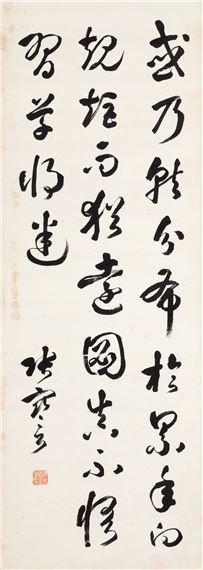 或乃就分布於累年向
規矩而猶遠圖真不悟
習草將迷